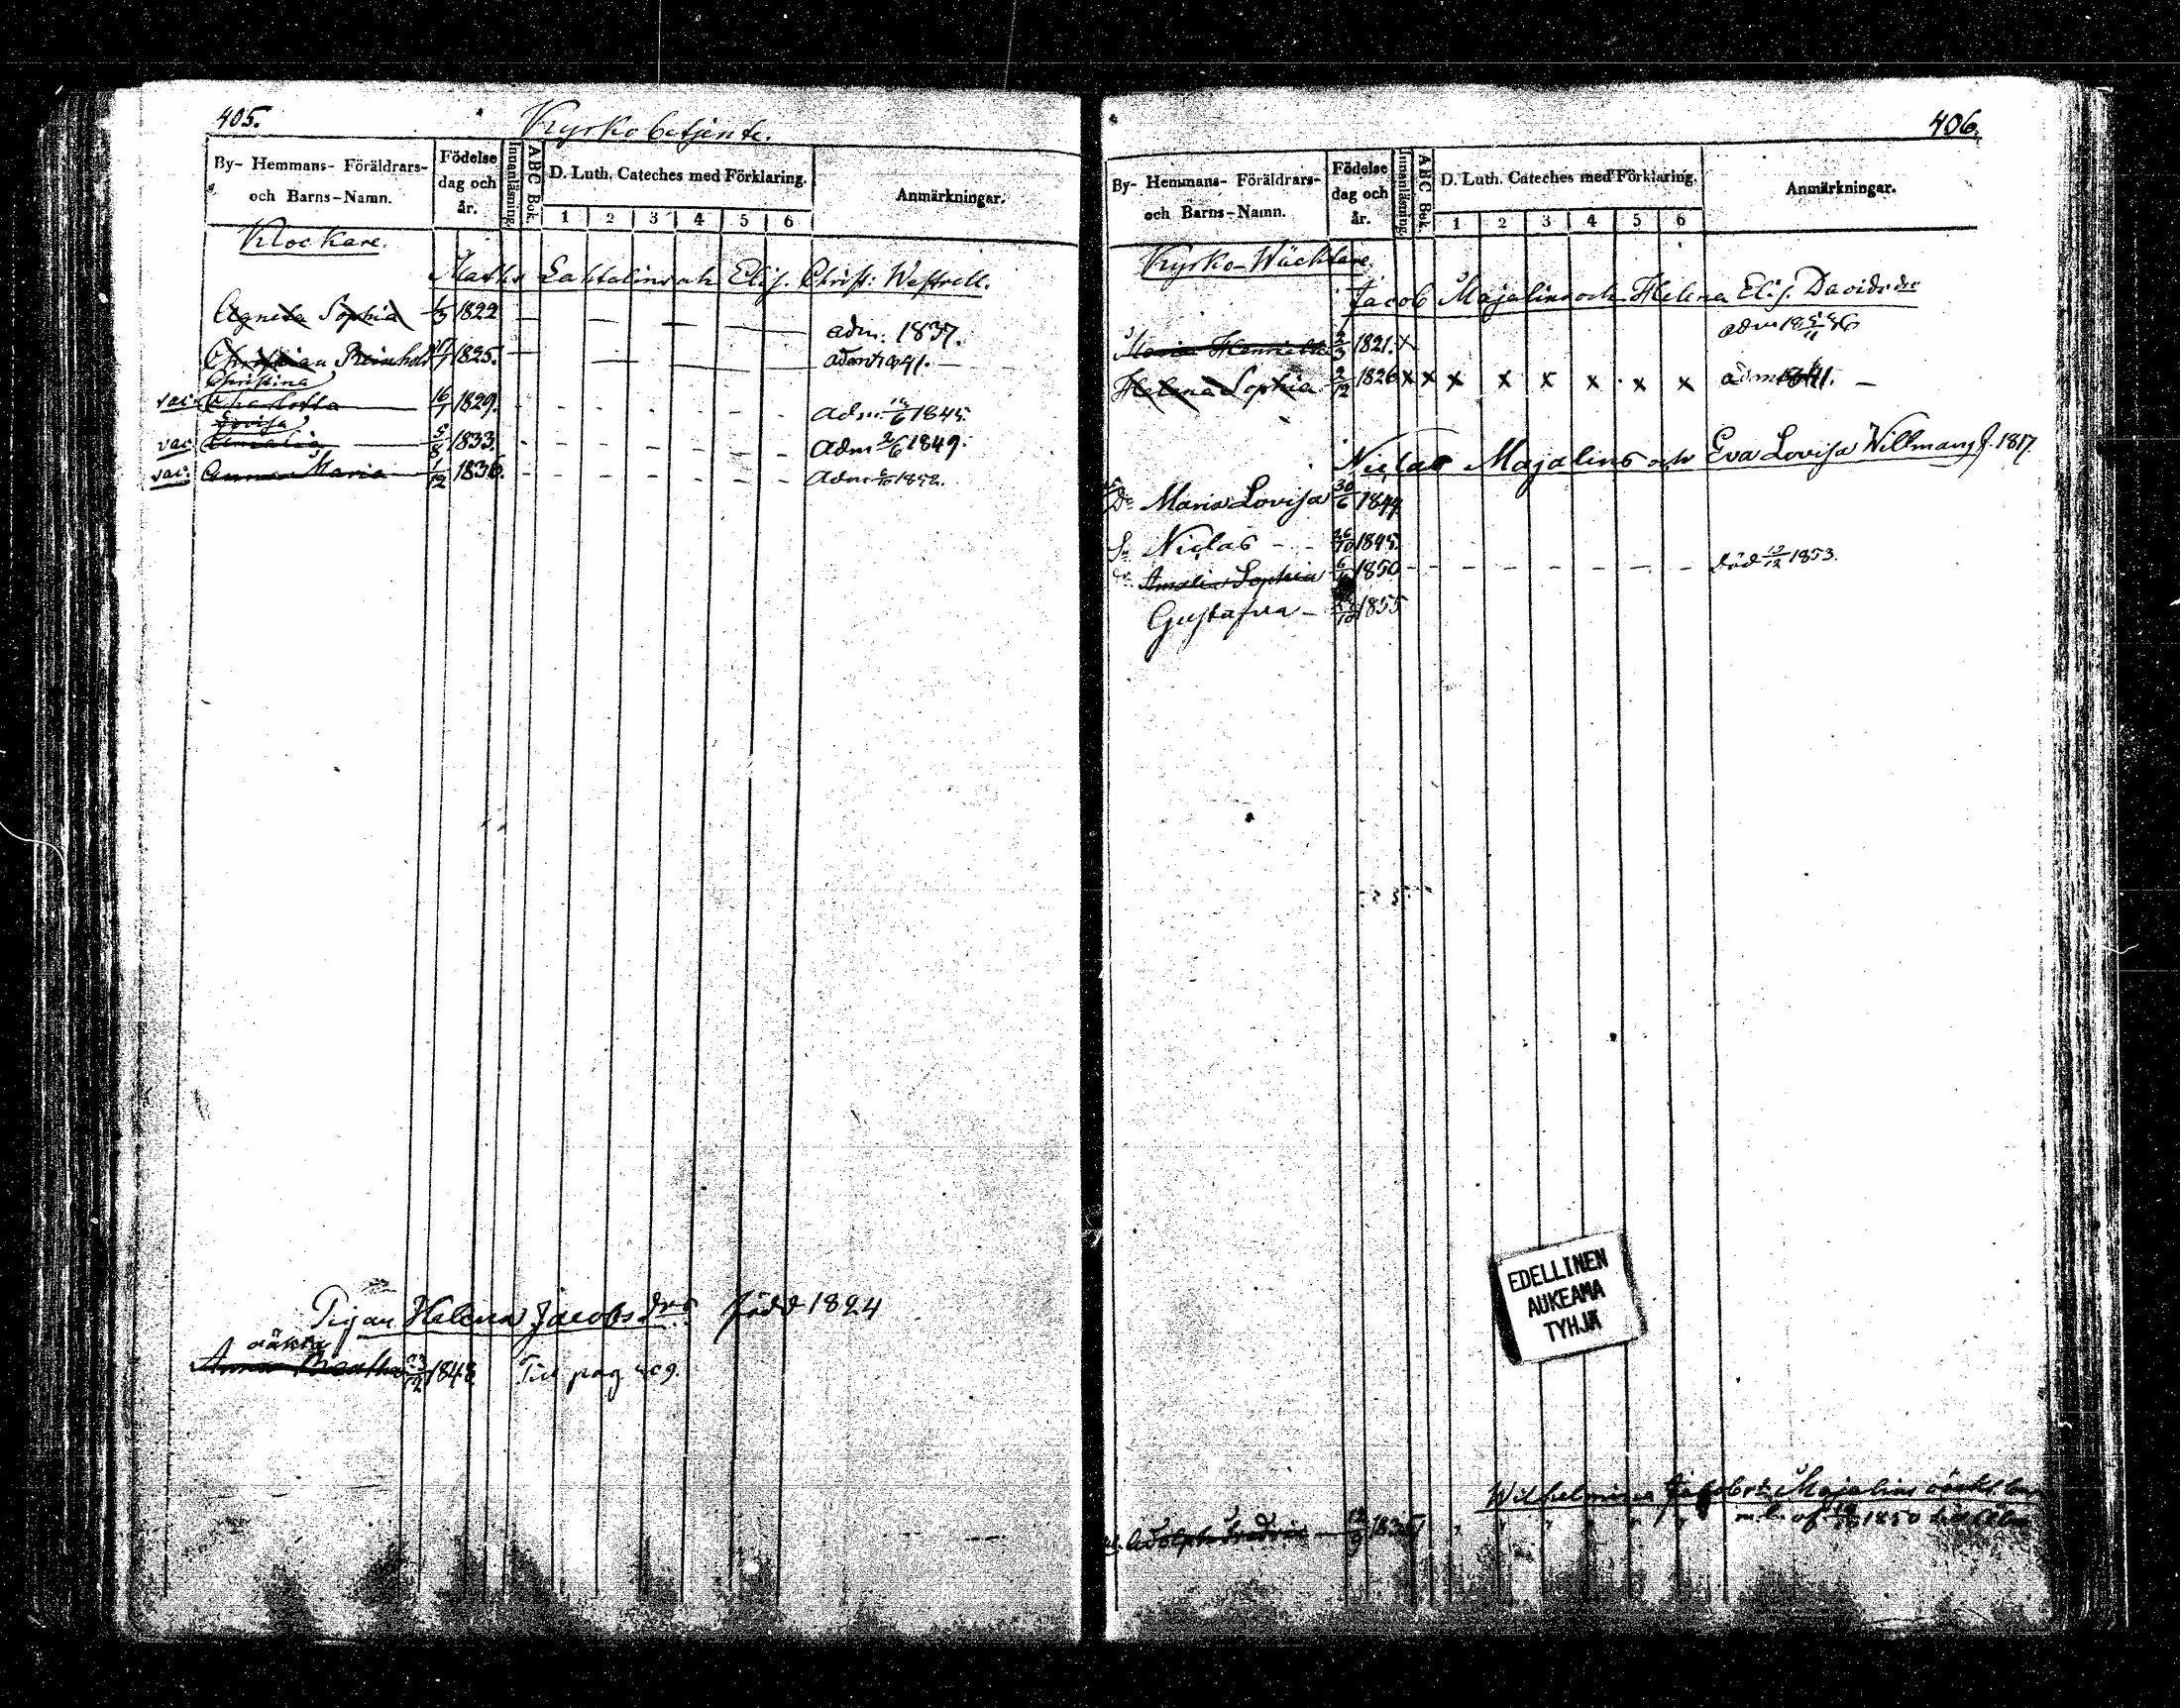 405.
Kyrkobetjente.
By- Hemmans- Föräldrars- och Barns-Namn.
Födelse dag och år.
Innanläsning.
ABC Bok.
D. Luth. Cateches med Förklaring.
1 2 3 4 5 6
Anmärkningar.
Klockare.
Maths Lahtalin och Elis. Christ: Westrell.
Agneta Sophia 1/5 1822 — — — — — adm. 1837.
Christian Reinhold 1825. — — — admt 1841. —
Christina
vac. Charlotta 16/7 1829. - - - - - - Adm. 1845.
Lovisa
vac. Amalia 5/8 1833. - - - - - - Adm 2/6 1849.
vac. Anna Maria 1/12 1836. - - - - - - - Adm 1852.
Pigan Helena Jacobsdrs född 1824
oäkta
Anna Beatha 23/12 1848. Till pag 409.
406.
By- Hemmans- Föräldrars- och Barns-Namn.
Födelse dag och år.
Innanläsning.
ABC Bok.
D. Luth. Cateches med Förklaring.
1 2 3 4 5 6
Anmärkningar.
Kyrko-Wäcktare.
Jacob Majalin och Helena Elis. Davidsdr
Maria Henrietta 2/3 1821. x adm
Helena Sophia 2/12 1826 x x x x x x x x adm 1841. —
Niclas Majalins och Eva Lovisa Willman f. 1817.
Dr Maria Lovisa 30/6 1844
Sn Niclas - - 26/10 1845.
Dr Amalia Sophia 1850 - - - - - - - - död 12/12 1853.
Gustafva - 1855
EDELLINEN
AUKEAMA
TYHJÄ
Wilhelmina Majalins
Adolph Fredric — 12/9 1835 " " " " " " 1850